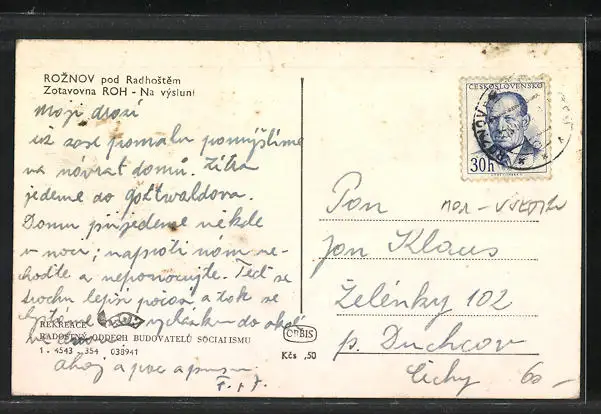 ROŽNOV pod Radhoštěm
Zotavovna ROH - Na výsluní
Moji drazí
už zase pomalu pomýšlíme
na návrat domů. Zítra
jedeme do gottwaldova.
Domu přijedeme někde
v noci, naproti nám ne-
choďte a neponocujte. Teď se
trochu lepší počasí a tak se
do okolí
REKREACE
RADOSTNÝ ODDECH BUDOVATELŮ SOCIALISMU
1. 4543 - 354 038941
ahoj a pac a pusu.
ORBIS
Kčs ,50
ČESKOSLOVENSKO
30h
ROŽNOV
Pan
Jan Klaus
Želénky 102
p. Duchcov
60-